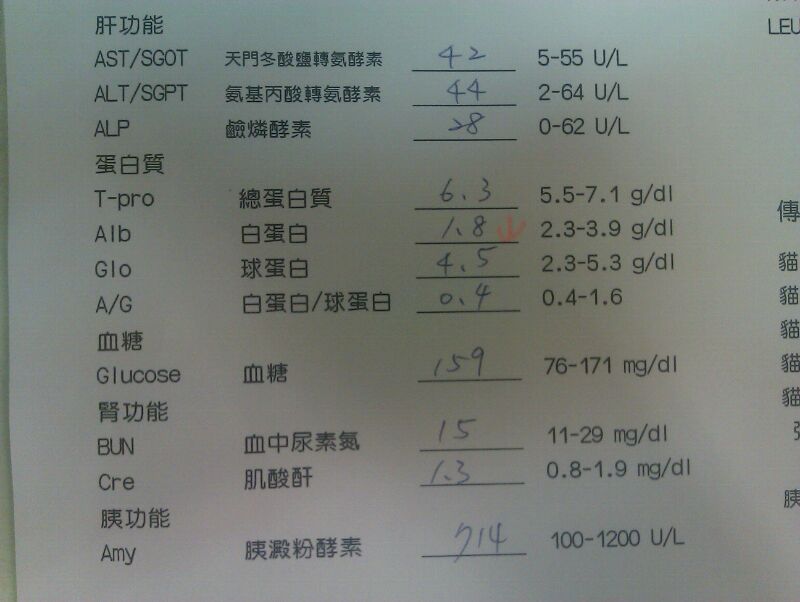 肝功能
AST/SGOT 天門冬酸鹽轉氨酵素 42 5-55 U/L
ALT/SGPT 氨基丙酸轉氨酵素 44 2-64 U/L
ALP 鹼燐酵素 28 0-62 U/L
蛋白質
T-pro 總蛋白質 6.3 5.5-7.1 g/dl
Alb 白蛋白 1.8 ↓ 2.3-3.9 g/dl
Glo 球蛋白 4.5 2.3-5.3 g/dl
A/G 白蛋白/球蛋白 0.4 0.4-1.6
血糖
Glucose 血糖 159 76-171 mg/dl
腎功能
BUN 血中尿素氮 15 11-29 mg/dl
Cre 肌酸酐 1.3 0.8-1.9 mg/dl
胰功能
Amy 胰澱粉酵素 714 100-1200 U/L
LEU
傳
貓
貓
貓
貓
貓
胰